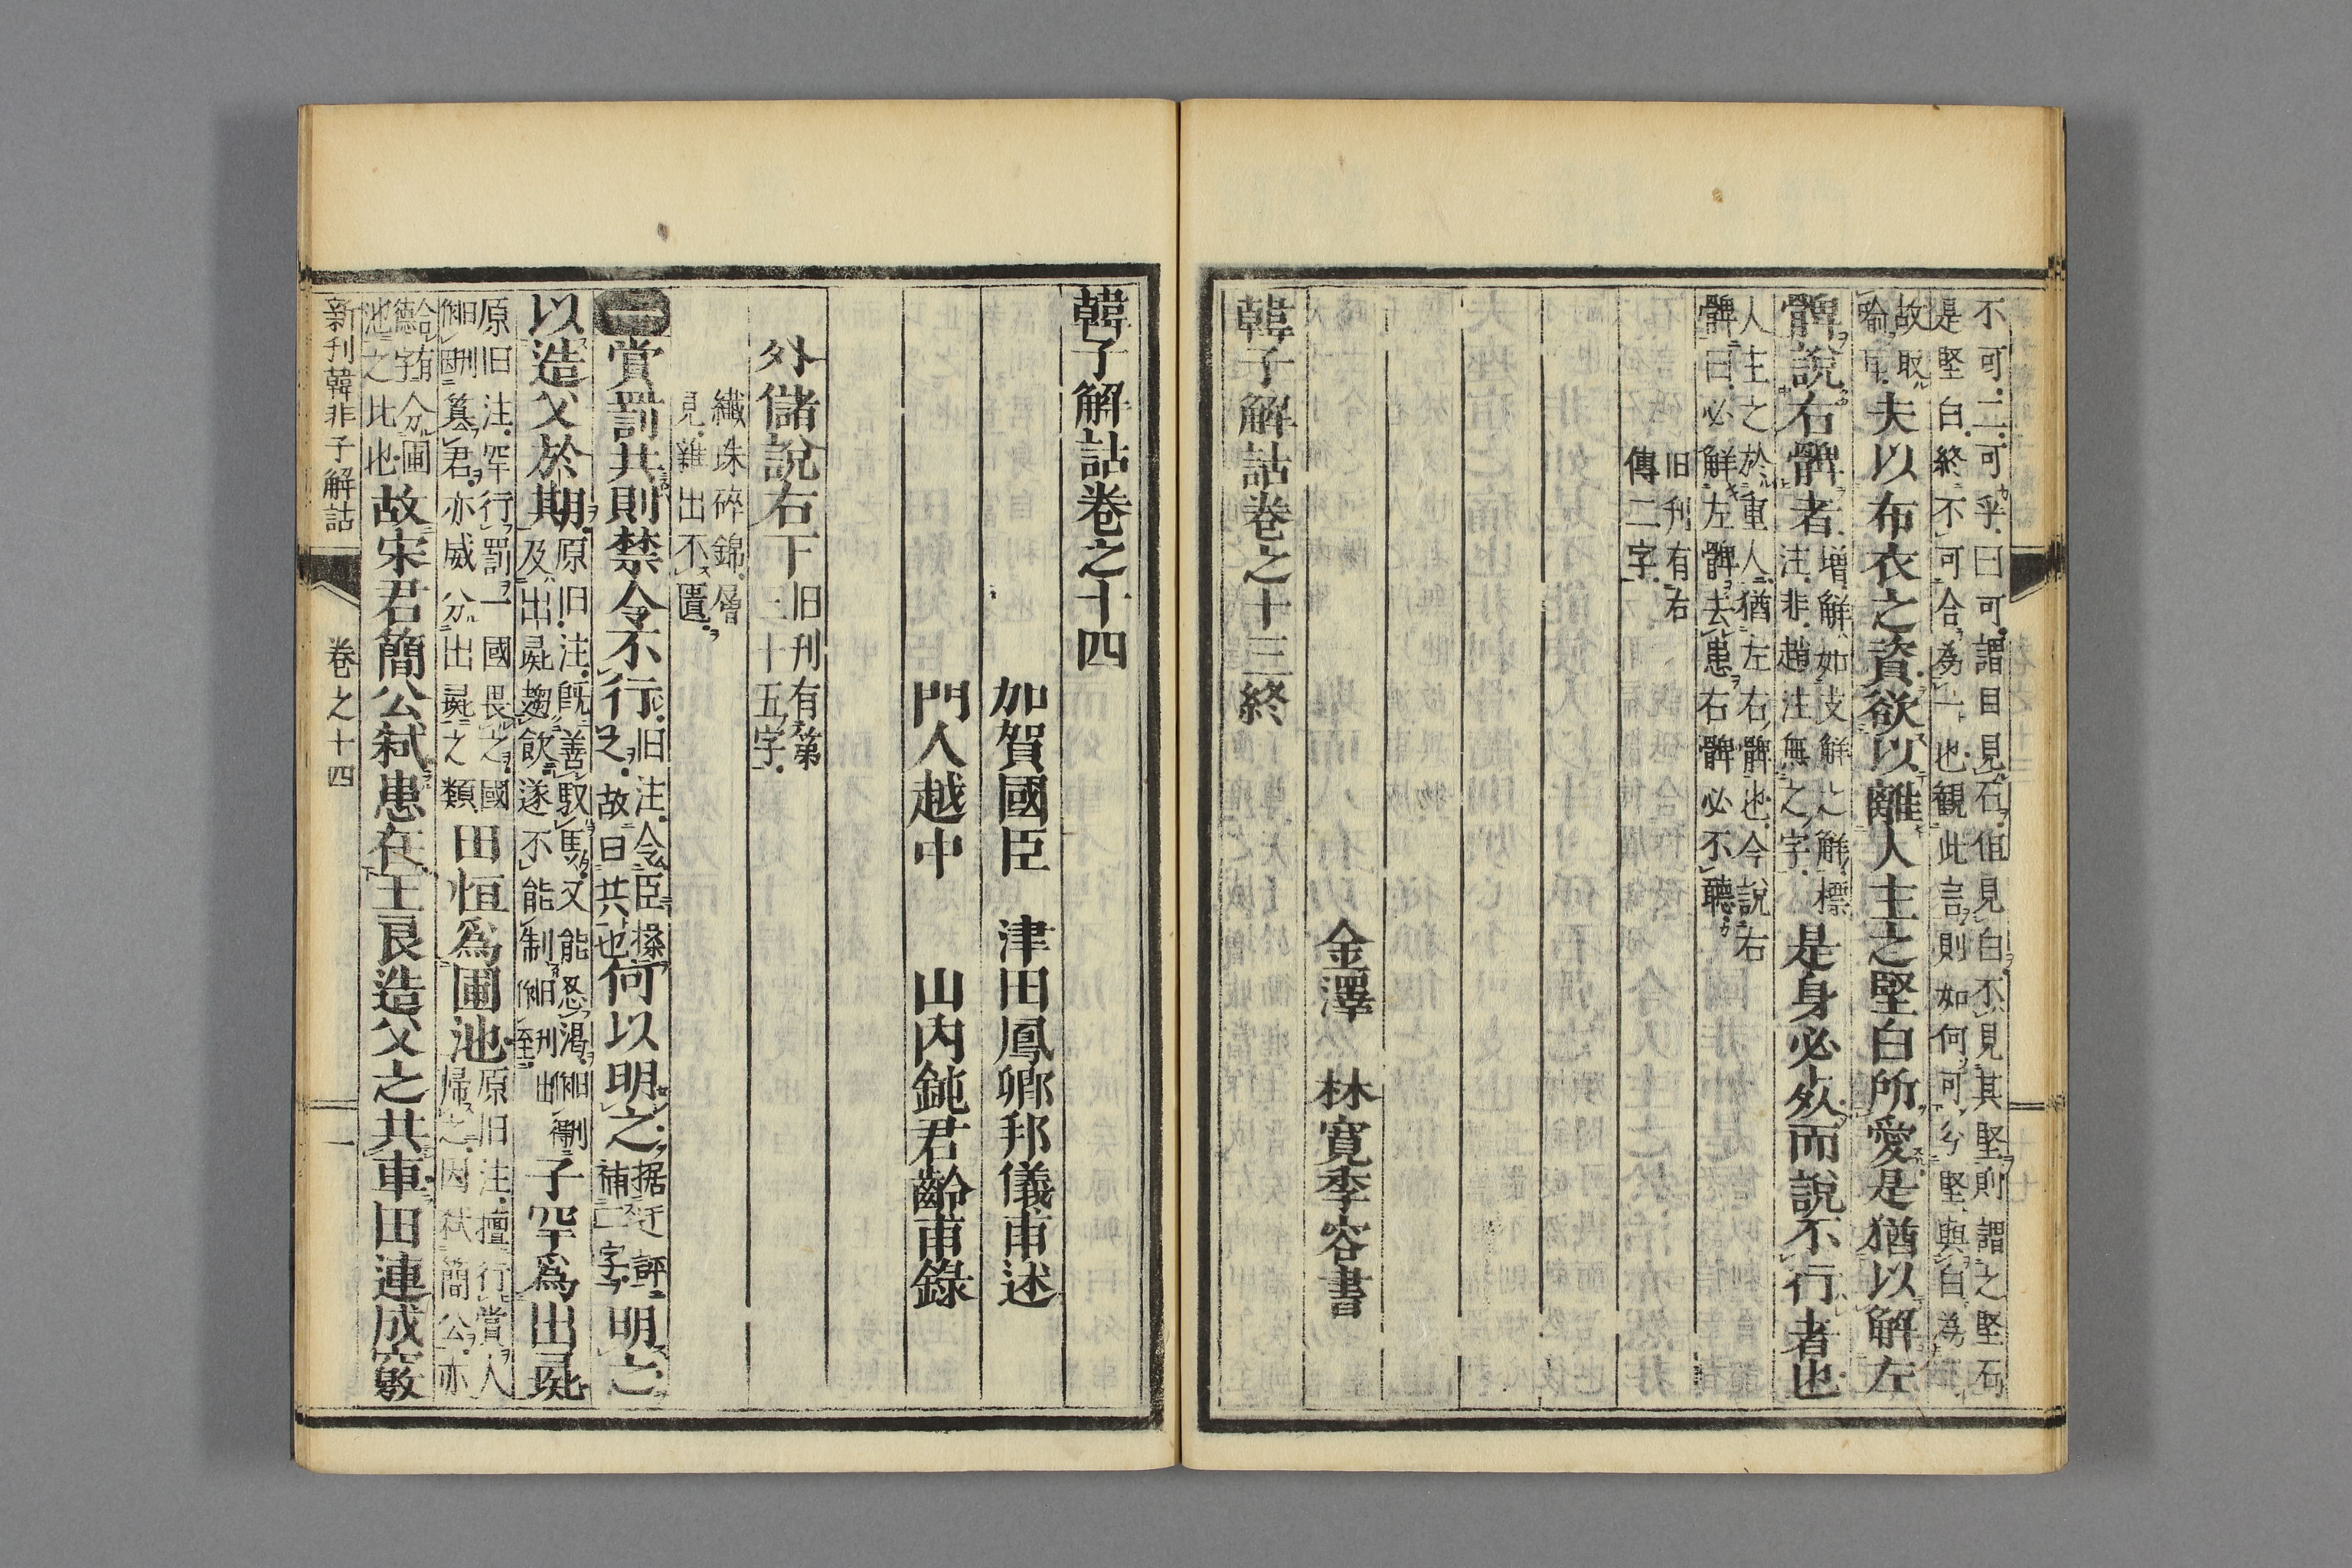 不可二可乎曰可謂目見石但見白不見其堅則謂之堅石
是堅白終不可合為一也観此言則如何可分堅與白為
故取
喻耳夫以布衣之資欲以離人主之堅白所愛是猶以解左
髀說右髀者增解如支解之解標
注非趙注無之字是身必死而說不行者也
人主之於重人猶左右髀也今說右
髀曰必解左髀去患右髀必不聽
旧刊有右
傳二字
金澤 林寬季容書
韓子解詁卷之十三終
韓子解詁卷之十四
加賀國臣 津田鳳卿邦儀甫述
門人越中 山内鈍君齡甫錄
外儲說右下旧刊有第
三十五字
纖珠碎錦層
見雜出不匱
一賞罰共則禁令不行旧注令臣操
之故曰共也何以明之据迂評
補二字明之
以造父於期原旧注既善馭馬又能忍渴旧刪得
及出彘趨飲遂不能制旧刊出
至子罕為出彘
原旧注罕行罰一國畏之國
旧刪因篡君亦威分出彘之類田恒為圃池原旧注擅行賞人
歸之因弑簡公亦
德字分圃
池之比也故宋君簡公弑患在王良造父之共車田連成竅
新刊韓非子解詁 卷之十四 一